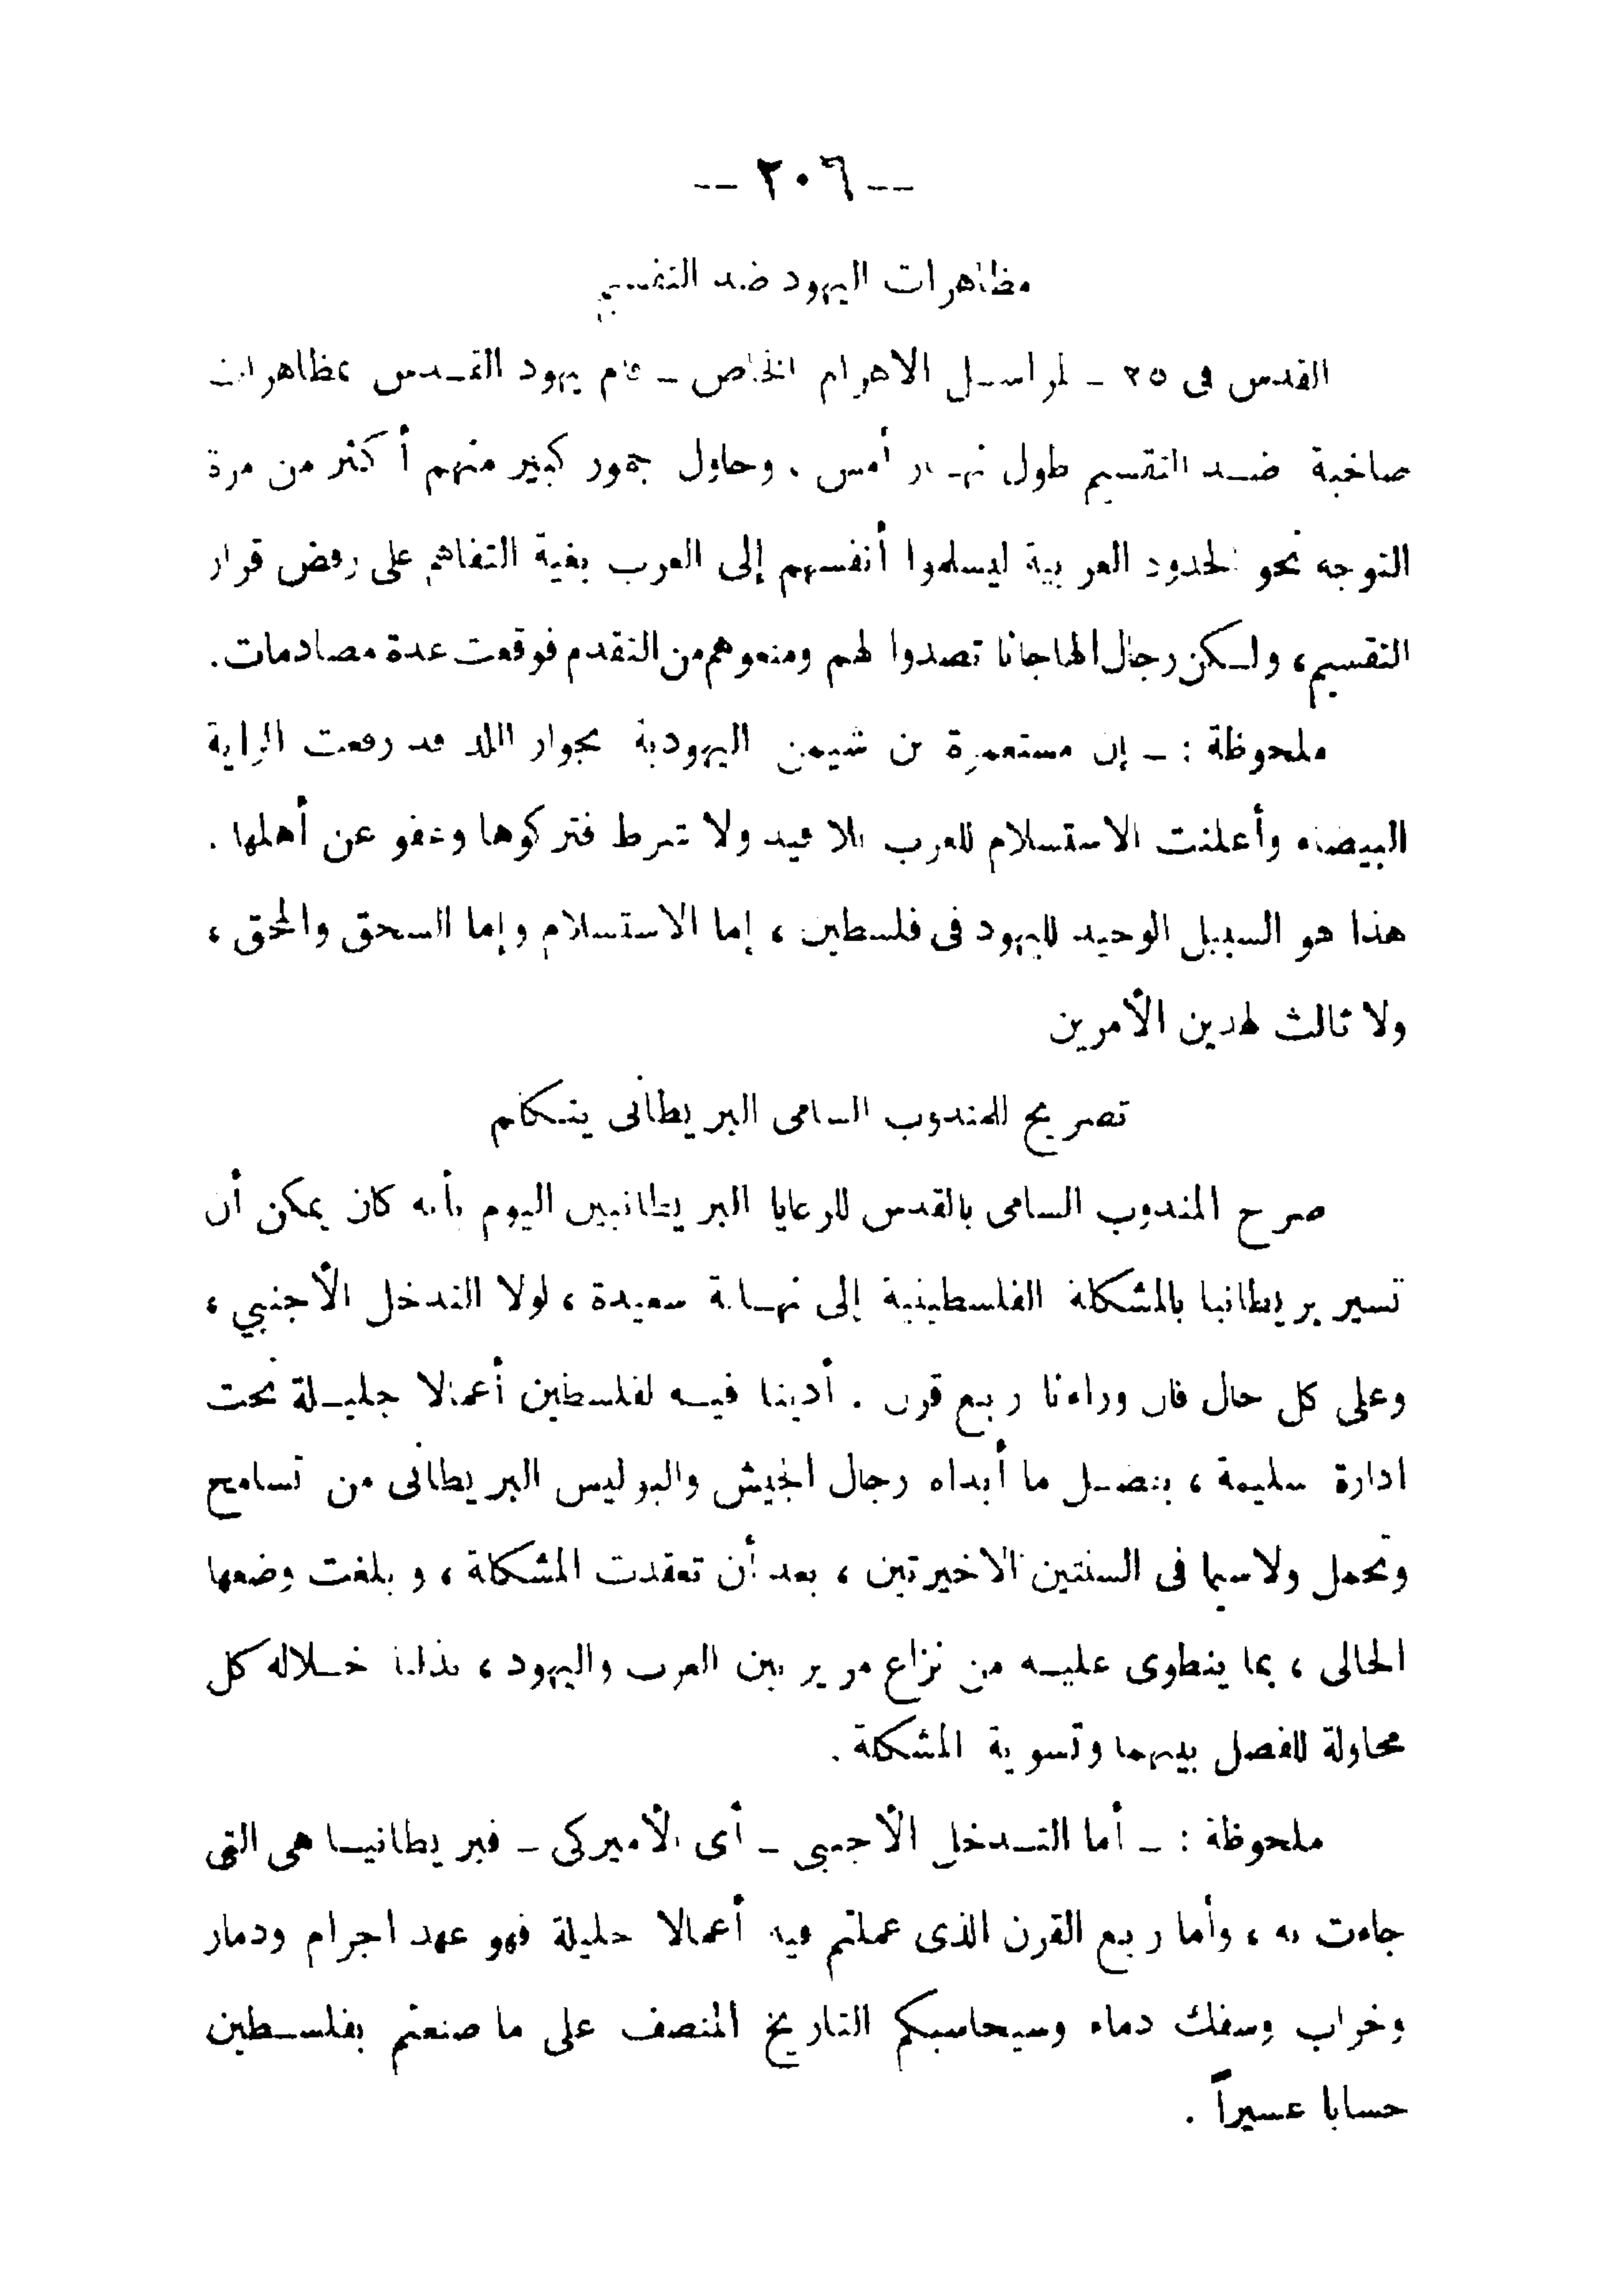 -- ٢٠٦ --
مظاهرات اليهود ضد التقسيم
القدس فى ٢٥ ـ لمراسل الاهرام الخاص ـ قام يهود القدس بمظاهرات
صاخبة ضد التقسيم طول نهار أمس . وحاول جمهور كبير منهم أكثر من مرة
التوجه نحو الحدود العربية ليسلموا أنفسهم إلى العرب بغية التفاهم على رفض قرار
التقسيم ، ولكن رجال الهاجانا تصدوا لهم ومنعوهم من التقدم فوقعت عدة مصادمات .
ملحوظة : ـ إن مستعمرة بن شيمن اليهودية بجوار اللد قد رفعت الراية
البيضاء وأعلنت الاستسلام للعرب بلا قيد ولا شرط فتركوها وعفو عن أهلها .
هذا هو السبيل الوحيد لليهود فى فلسطين ، إما الاستسلام وإما السحق والمحق ،
ولا ثالث لهذين الأمرين
تصريح للمندوب السامى البريطانى يتكلم
صرح المندوب السامى بالقدس للرعايا البريطانيين اليوم بأنه كان يمكن أن
تسير بريطانيا بالمشكلة الفلسطينية إلى نهاية سعيدة ، لولا التدخل الأجنبي ،
وعلى كل حال فان وراءنا ربع قرن . أدينا فيه لفلسطين أعمالا جليلة تحت
ادارة سليمة ، بفضل ما أبداه رجال الجيش والبوليس البريطانى من تسامح
وتحمل ولاسيما فى السنتين الاخيرتين ، بعد أن تعقدت المشكلة ، وبلغت وضعها
الحالى ، بما ينطوى عليه من نزاع مرير بين العرب واليهود ، بذلنا خلاله كل
محاولة للفصل بينهما وتسوية المشكلة .
ملحوظة : ـ أما التدخل الأجنبى ـ أى الأميركى ـ فبريطانيا هى التى
جاءت به ، وأما ربع القرن الذى عملتم فيه أعمالا جليلة فهو عهد اجرام ودمار
وخراب وسفك دماء وسيحاسبكم التاريخ المنصف على ما صنعتم بفلسطين
حسابا عسيراً .